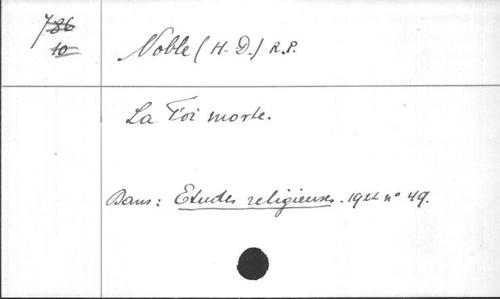 786
10
Noble (H-D.) R.P.
La Foi morte.
Dans: Etudes religieuses. 1921 n° 49.